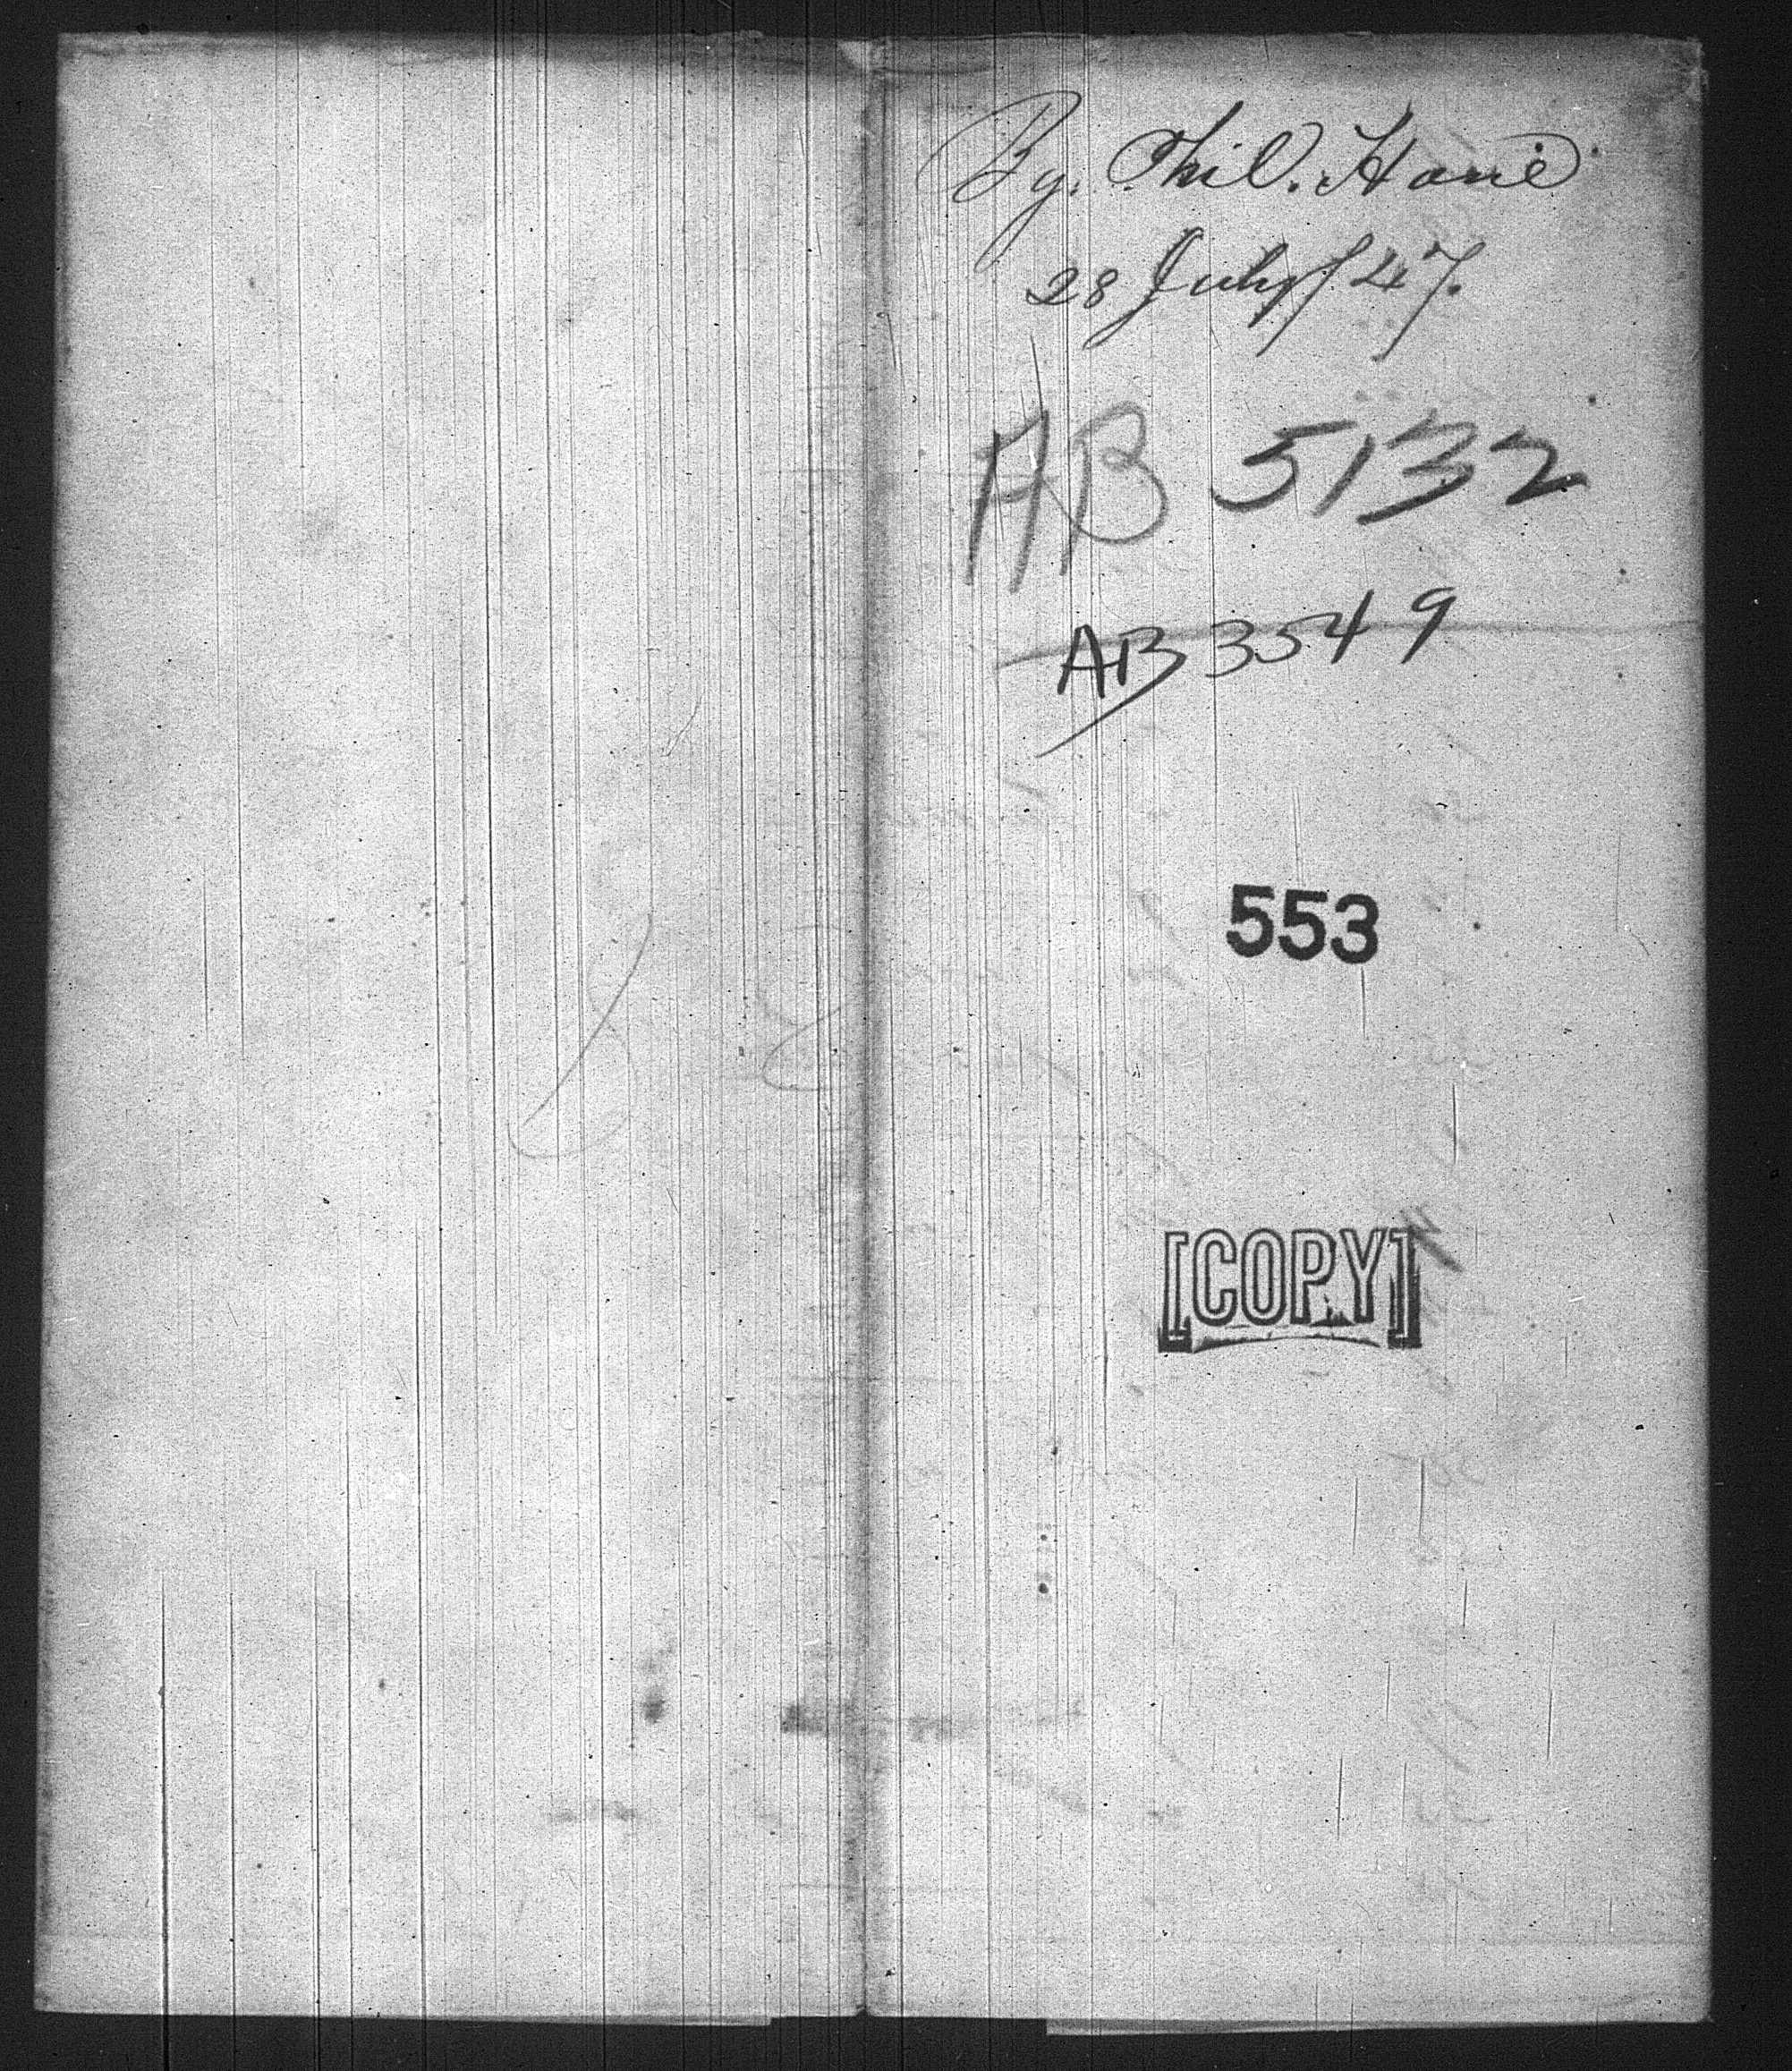 By. Phil. Hone
28 July/47.
AB 5132
AB 3549
553
[COPY]